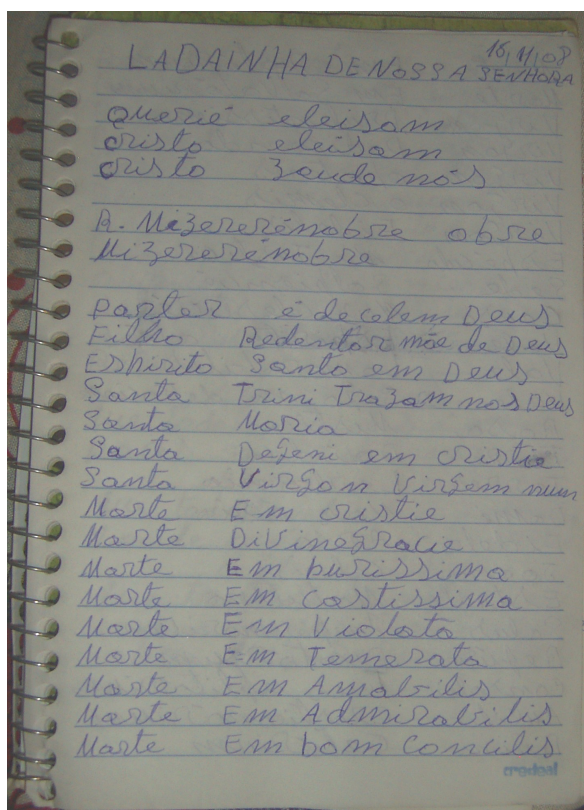 15,11,08
LADAINHA DE NOSSA SENHORA
Querié eleisom
Cristo eleisom
Cristo zaudenós
R. Mizererénobre obre
Mizererénobre
Parler é decelem Deus
Filho Redentor mãe de Deus
Espirito Santo em Deus
Santa Trini Trazam nos Deus
Santa Maria
Santa Degeni em cristie
Santa Virgon Virgem num
Marte Em cristie
Marte Divinegracie
Marte Em burissima
Marte Em castissima
Marte Em Violata
Marte Em Temerata
Marte Em Amabilis
Marte Em Admirabilis
Marte Em bom Concilis